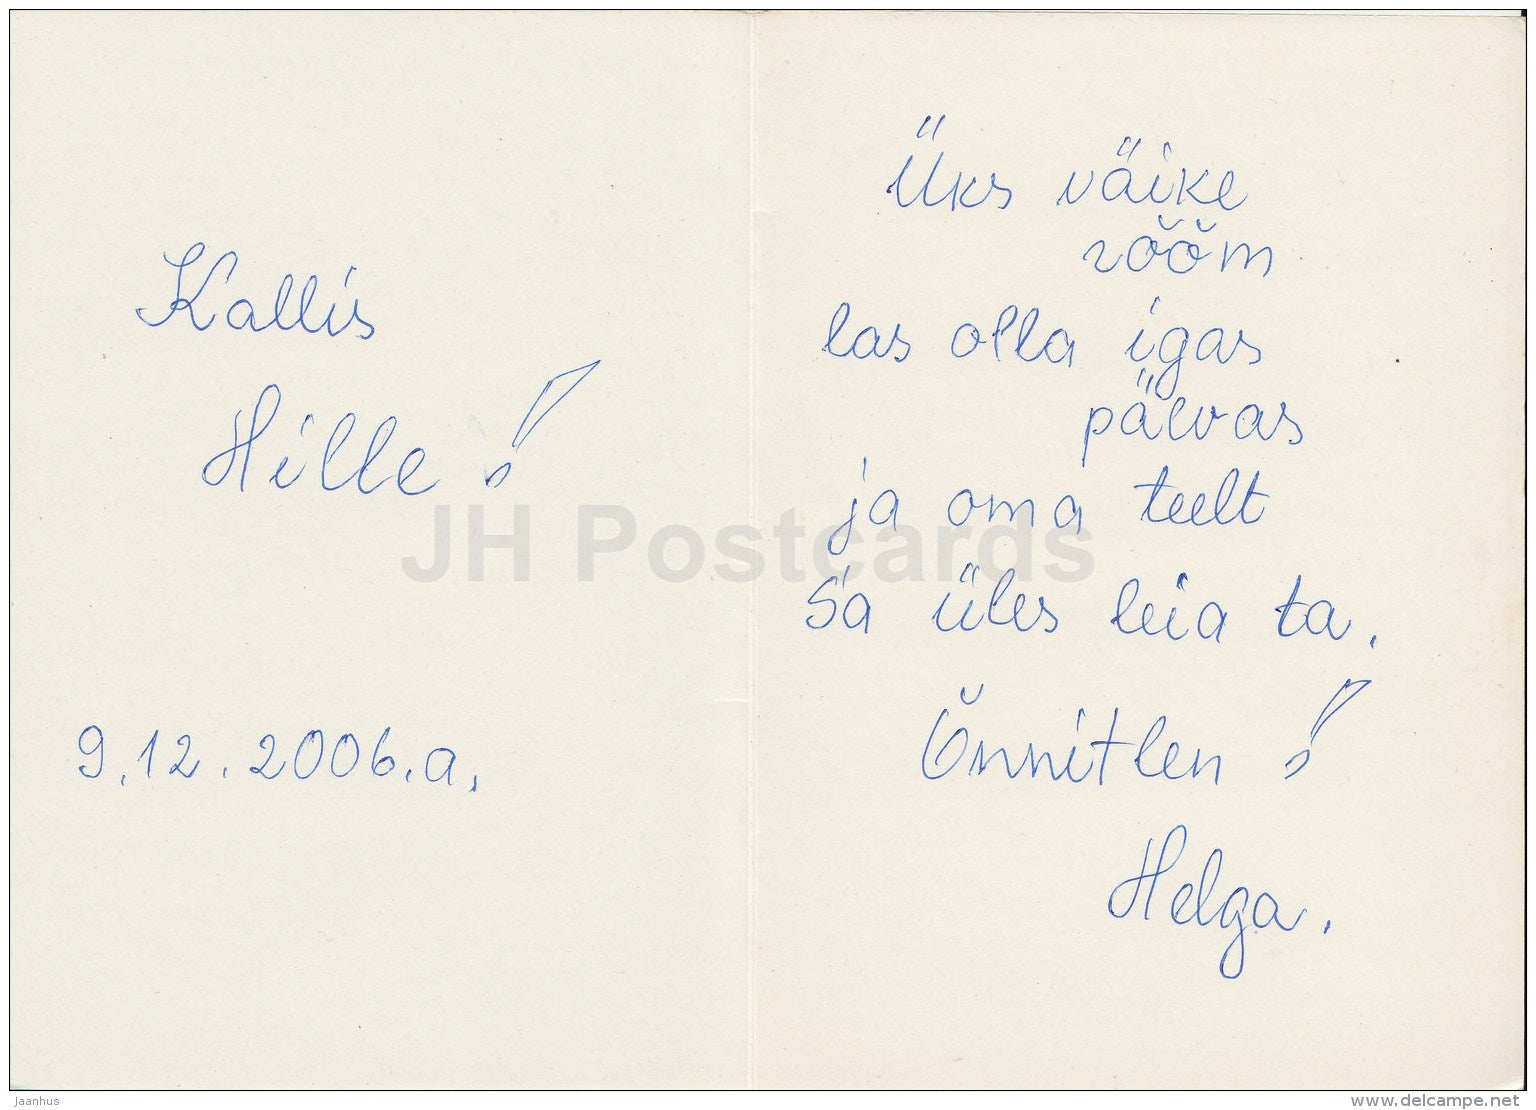 Kallis
Hille!
9.12.2006.a.
Üks väike
rõõm
las olla igas
päevas
ja oma teelt
Sa üles leia ta.
Õnnitlen!
Helga.
JH Postcards
Jaanhus
www.delcampe.net